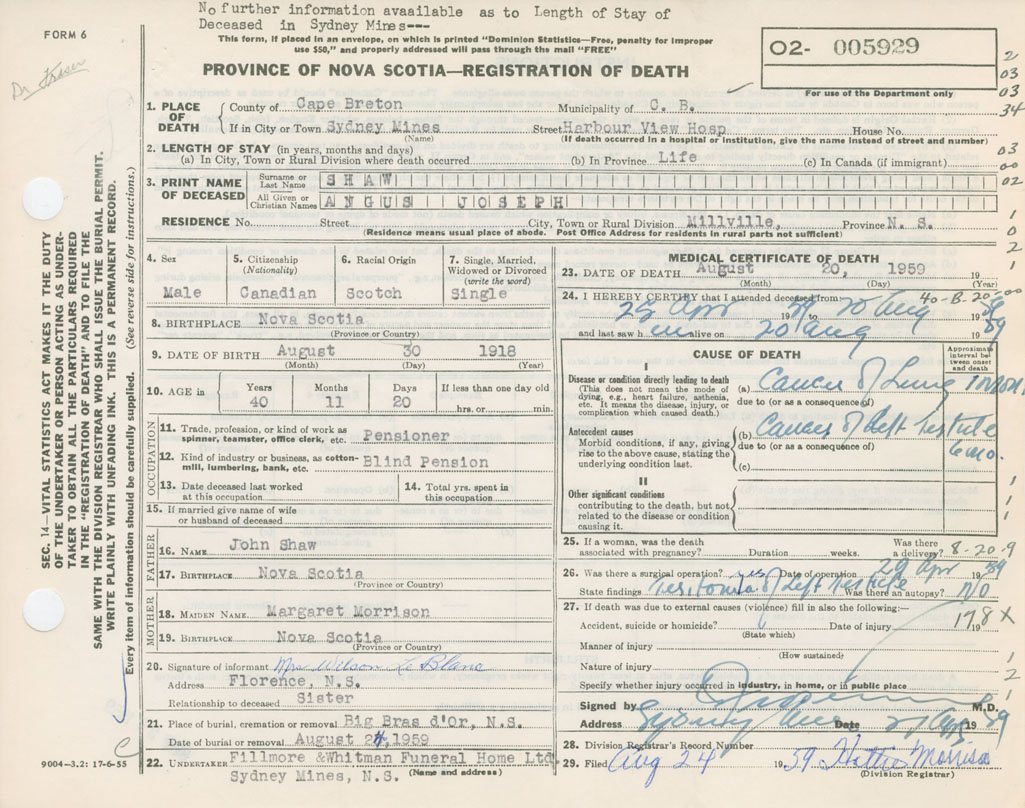 No further information avaailable as to Length of Stay of
Deceased in Sydney Mines---
FORM 6
This form, if placed in an envelope, on which is printed "Dominion Statistics—Free, penalty for improper
use $50," and properly addressed will pass through the mail "FREE"
Dr Fraser
PROVINCE OF NOVA SCOTIA—REGISTRATION OF DEATH
O2- 005929
For use of the Department only
2
03
03
34
03
00
02
1
0
2
1
SEC. 14—VITAL STATISTICS ACT MAKES IT THE DUTY
OF THE UNDERTAKER OR PERSON ACTING AS UNDER-
TAKER TO OBTAIN ALL THE PARTICULARS REQUIRED
IN THE "REGISTRATION OF DEATH" AND TO FILE THE
SAME WITH THE DIVISION REGISTRAR WHO SHALL ISSUE THE BURIAL PERMIT.
WRITE PLAINLY WITH UNFADING INK. THIS IS A PERMANENT RECORD.
Every item of information should be carefully supplied. (See reverse side for instructions.)
1. PLACE OF DEATH County of Cape Breton Municipality of C. B.
If in City or Town Sydney Mines Street Harbour View Hosp House No.
(Name) (If death occurred in a hospital or institution, give the name instead of street and number)
2. LENGTH OF STAY (in years, months and days)
(a) In City, Town or Rural Division where death occurred (b) In Province Life (c) In Canada (if immigrant)
3. PRINT NAME OF DECEASED Surname or Last Name SHAW
All Given or Christian Names ANGUS JOSEPH
RESIDENCE No. Street City, Town or Rural Division Millville, Province N. S.
(Residence means usual place of abode. Post Office Address for residents in rural parts not sufficient)
4. Sex Male
5. Citizenship (Nationality) Canadian
6. Racial Origin Scotch
7. Single, Married, Widowed or Divorced (write the word) Single
8. BIRTHPLACE Nova Scotia
(Province or Country)
9. DATE OF BIRTH August 30 1918
(Month) (Day) (Year)
10. AGE in Years 40 Months 11 Days 20 If less than one day old hrs. or min.
OCCUPATION
11. Trade, profession, or kind of work as spinner, teamster, office clerk, etc. Pensioner
12. Kind of industry or business, as cotton-mill, lumbering, bank, etc. Blind Pension
13. Date deceased last worked at this occupation
14. Total yrs. spent in this occupation
15. If married give name of wife or husband of deceased
FATHER
16. NAME John Shaw
17. BIRTHPLACE Nova Scotia
(Province or Country)
MOTHER
18. MAIDEN NAME Margaret Morrison
19. BIRTHPLACE Nova Scotia
(Province or Country)
20. Signature of informant Mrs Wilson Le Blanc
Address Florence, N.S.
Relationship to deceased Sister
21. Place of burial, cremation or removal Big Bras d'Or, N.S.
Date of burial or removal August 24, 1959
22. UNDERTAKER Fillmore &Whitman Funeral Home Ltd
Sydney Mines, N.S. (Name and address)
9004-3,2: 17-6-55
MEDICAL CERTIFICATE OF DEATH
23. DATE OF DEATH August 20, 1959 19
(Month) (Day) (Year)
24. I HEREBY CERTIFY that I attended deceased from 40-B.20-00
25 Apr 1959 20 Aug 1959
and last saw him alive on 20 Aug 1959
CAUSE OF DEATH
Approximate interval between onset and death
I
Disease or condition directly leading to death
(This does not mean the mode of dying, e.g., heart failure, asthenia, etc. It means the disease, injury, or complication which caused death.)
(a) Cancer of Lung
due to (or as a consequence of)
Antecedent causes
Morbid conditions, if any, giving rise to the above cause, stating the underlying condition last.
(b) Cancer of Left Testicle
due to (or as a consequence of) 6 mo.
(c)
II
Other significant conditions
contributing to the death, but not related to the disease or condition causing it.
1
1
1
25. If a woman, was the death associated with pregnancy? Duration weeks. Was there a delivery? 8-20-9
26. Was there a surgical operation? yes Date of operation 29 Apr 1959
State findings Left Testicle Was there an autopsy? NO
27. If death was due to external causes (violence) fill in also the following:—
Accident, suicide or homicide? Date of injury 19 178X
(State which)
Manner of injury
(How sustained)
Nature of injury
Specify whether injury occurred in industry, in home, or in public place
1
2
1
Signed by M.D.
Address Sydney Mines Date 21 Aug 1959
28. Division Registrar's Record Number
29. Filed Aug 24 1959 Hattie Morrison
(Division Registrar)